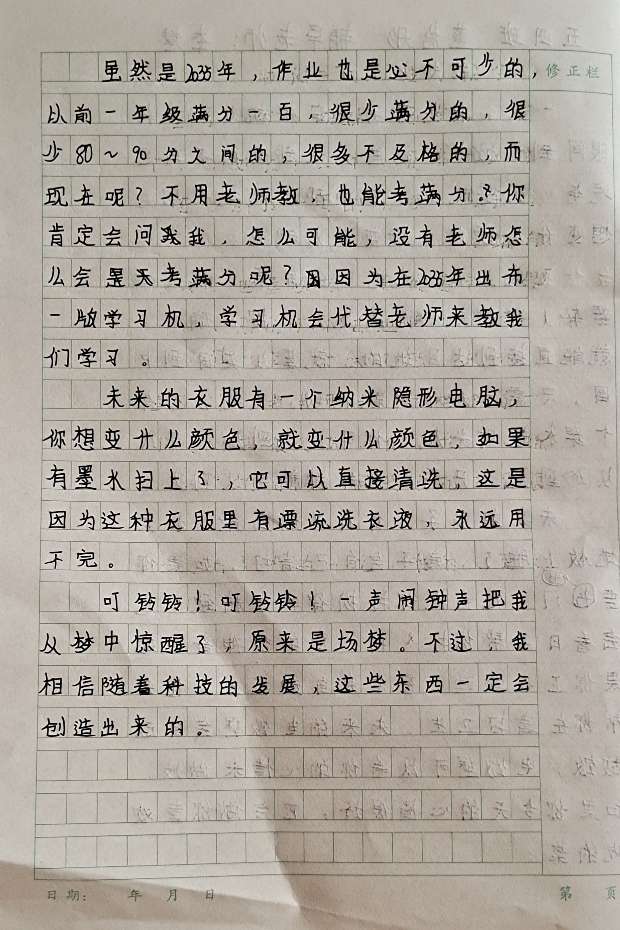 虽然是2035年，作业也是必不可少的，
修正栏
以前一年级满分一百，很少满分的，很
少80～90分之间的，很多不及格的，而
现在呢？不用老师教，也能考满分？你
肯定会问我，怎么可能，没有老师怎
么会是天考满分呢？因因为在2035年出布
一版学习机，学习机会代替老师来教我
们学习。
未来的衣服有一个纳米隐形电脑，
你想变什么颜色，就变什么颜色，如果
有墨水扫上了，它可以直接清洗，这是
因为这种衣服里有漂流洗衣液，永远用
不完。
叮铃铃！叮铃铃！一声闹钟声把我
从梦中惊醒了，原来是场梦。不过，我
相信随着科技的发展，这些东西一定会
创造出来的。
日期： 年 月 日
第 页